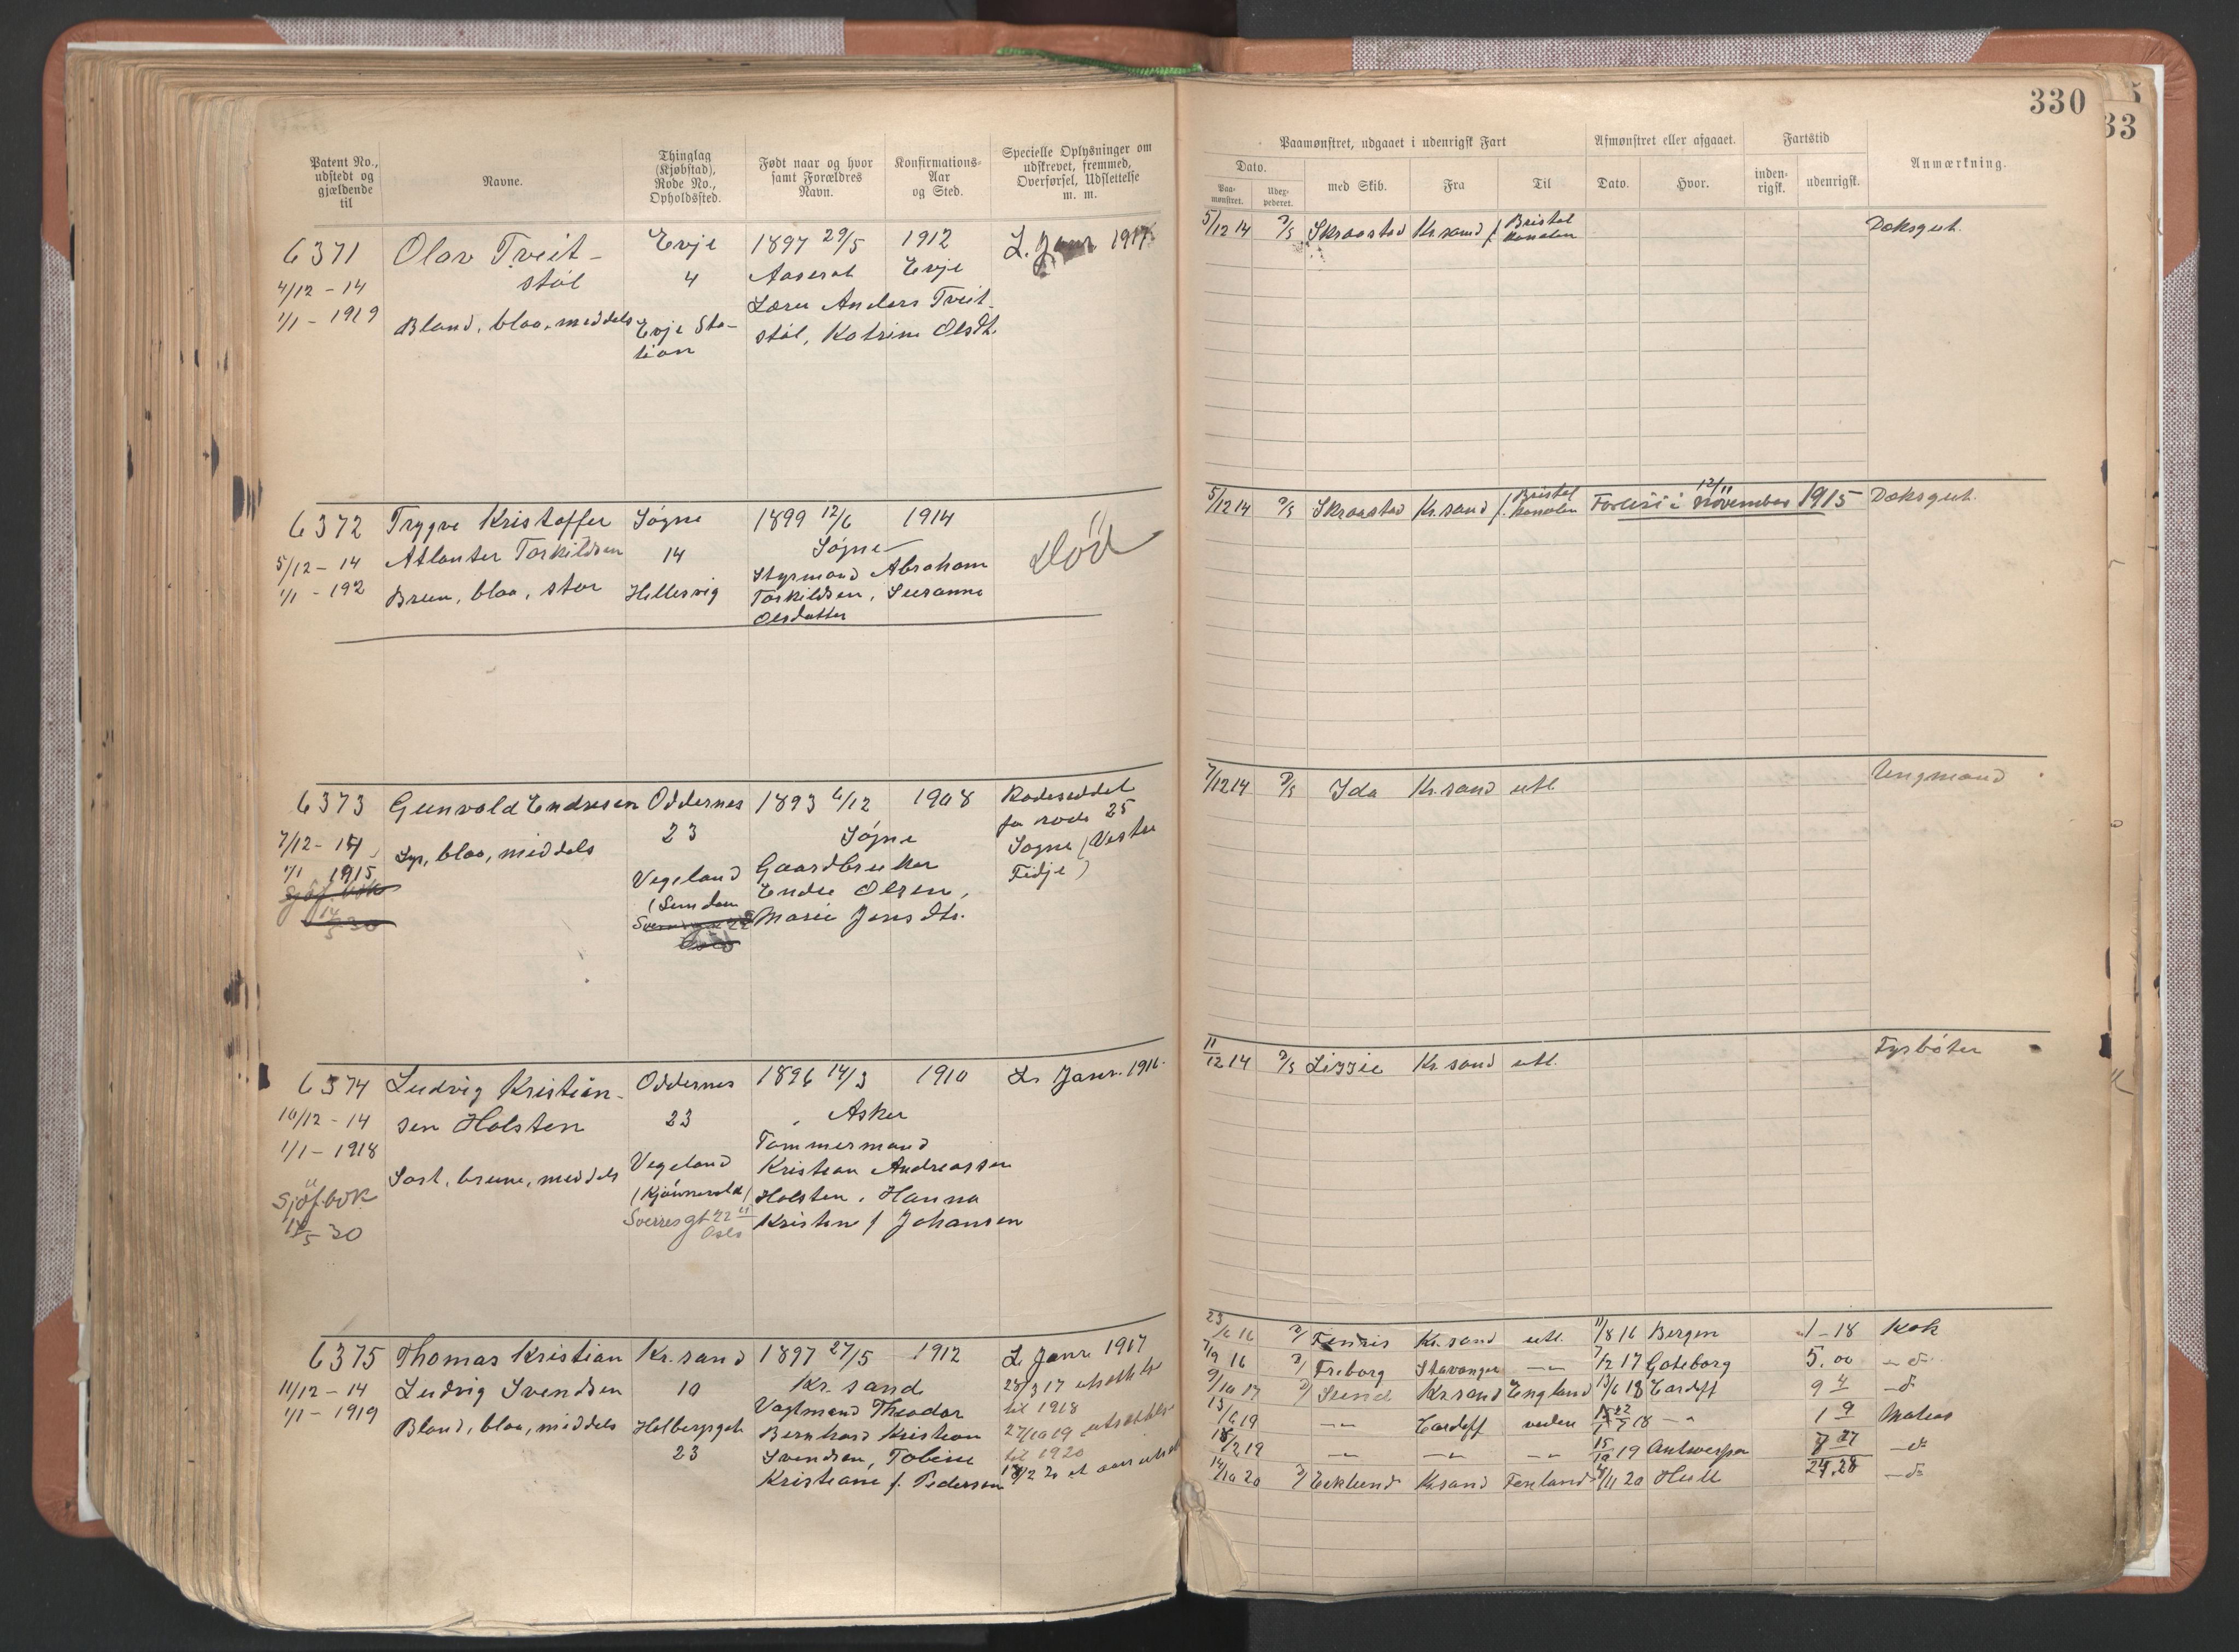 330
33
Patent No., udstedt og gjældende til
Navne.
Thinglag (Kjøbstad), Rode No., Opholdssted.
Født naar og hvor samt Forældres Navn.
Konfirmations-Aar og Sted.
Specielle Oplysninger om udskrevet, fremmed, Overførsel, Udslettelse m. m.
Paamønstret, udgaaet i udenrigsk Fart
Afmønstret eller afgaaet.
Fartstid
Anmærkning.
Dato.
Paa-mønstret.
Udex-pederet.
med Skib.
Fra
Til
Dato.
Hvor.
inden-rigsk.
udenrigsk.
6371 Olav Tveit- Evje 1897 29/5 1912 L. Janr 1917
4/12 - 14 støl 4 Aaseral Evje
1/1 - 1919 Blond, blaa, middels Evje Sta- Lærer Anders Tveit-
tion støl, Katrine Olsdt.
5/12 14 D/S Skraastad Kr.sand f. Bristol Kanalen Dæksgut.
6372 Trygve Kristoffer Søgne 1899 12/6 1914
5/12 - 14 Atlanter Torkildsen 14 Søgne Död
1/1 - 192 Brun, blaa, stor Hellesvig Styrmand Abraham
Torkildsen, Susanne
Olsdatter
5/12 14 D/S Skraastad Kr.sand f. Bristol Kanalen Forlist i 12/11 november 1915 Dæksgut.
6373 Gunvald Endresen Oddernes 1893 6/12 1908 Rodeseddel
7/12 - 14 Lys, blaa, middels 23 Søgne fra rode 25
1/1 1915 Vegeland Gaardbruker Søgne (Vestre
Sjöf.bok (Sundem Endre Olsen, Fidje)
14/5 30 Sverresgt 22 Marie Jensdtr.
Oslo
7/12 14 D/S Ida Kr.sand utl Ungmand
6374 Ludvig Kristian- Oddernes 1896 14/3 1910 L. Janr. 1916
10/12 - 14 sen Holsten 23 Asker
1/1 - 1918 Tømmermand
Sort, brune, middels Vegeland Kristian Andreassen
Sjöf.bok Holsten, Hanna
14/5 30 Sverresgt 22 II Kristine f Johansen
Oslo
11/12 14 D/S Lizzie Kr.sand utl. Fyrbøter
6375 Thomas Kristian Kr.sand 1897 27/5 1912 L. Janr 1917
11/12 - 14 Ludvig Svendsen 10 Kr. sand
1/1 - 1919 Blond, blaa, middels Holbergsgt Vagtmand Theodor til 1918
23 Bernhard Kristian 27/10 19
Svendsen, Tobine til 1920
Kristiane f. Pedersen
23/6 16 D/ Fenris Kr.sand utl. 11/8 16 Bergen 1-18 Kok
7/9 16 D/ Freborg Stavanger -"- 7/2 17 Gøteborg 5.00 -d-
9/10 17 D/ Kr.sand England 13/6 18 Cardiff 9 4 -d-
13/6 19 -"- Cardiff verden 1 9 Matros
18/2 19 -"- -"- -"- 15/10 19 Antwerpen 7 27 -d-
14/10 20 D/ Ecklund Kr.sand Finland 28/11 20 Hull 24.28 -d-